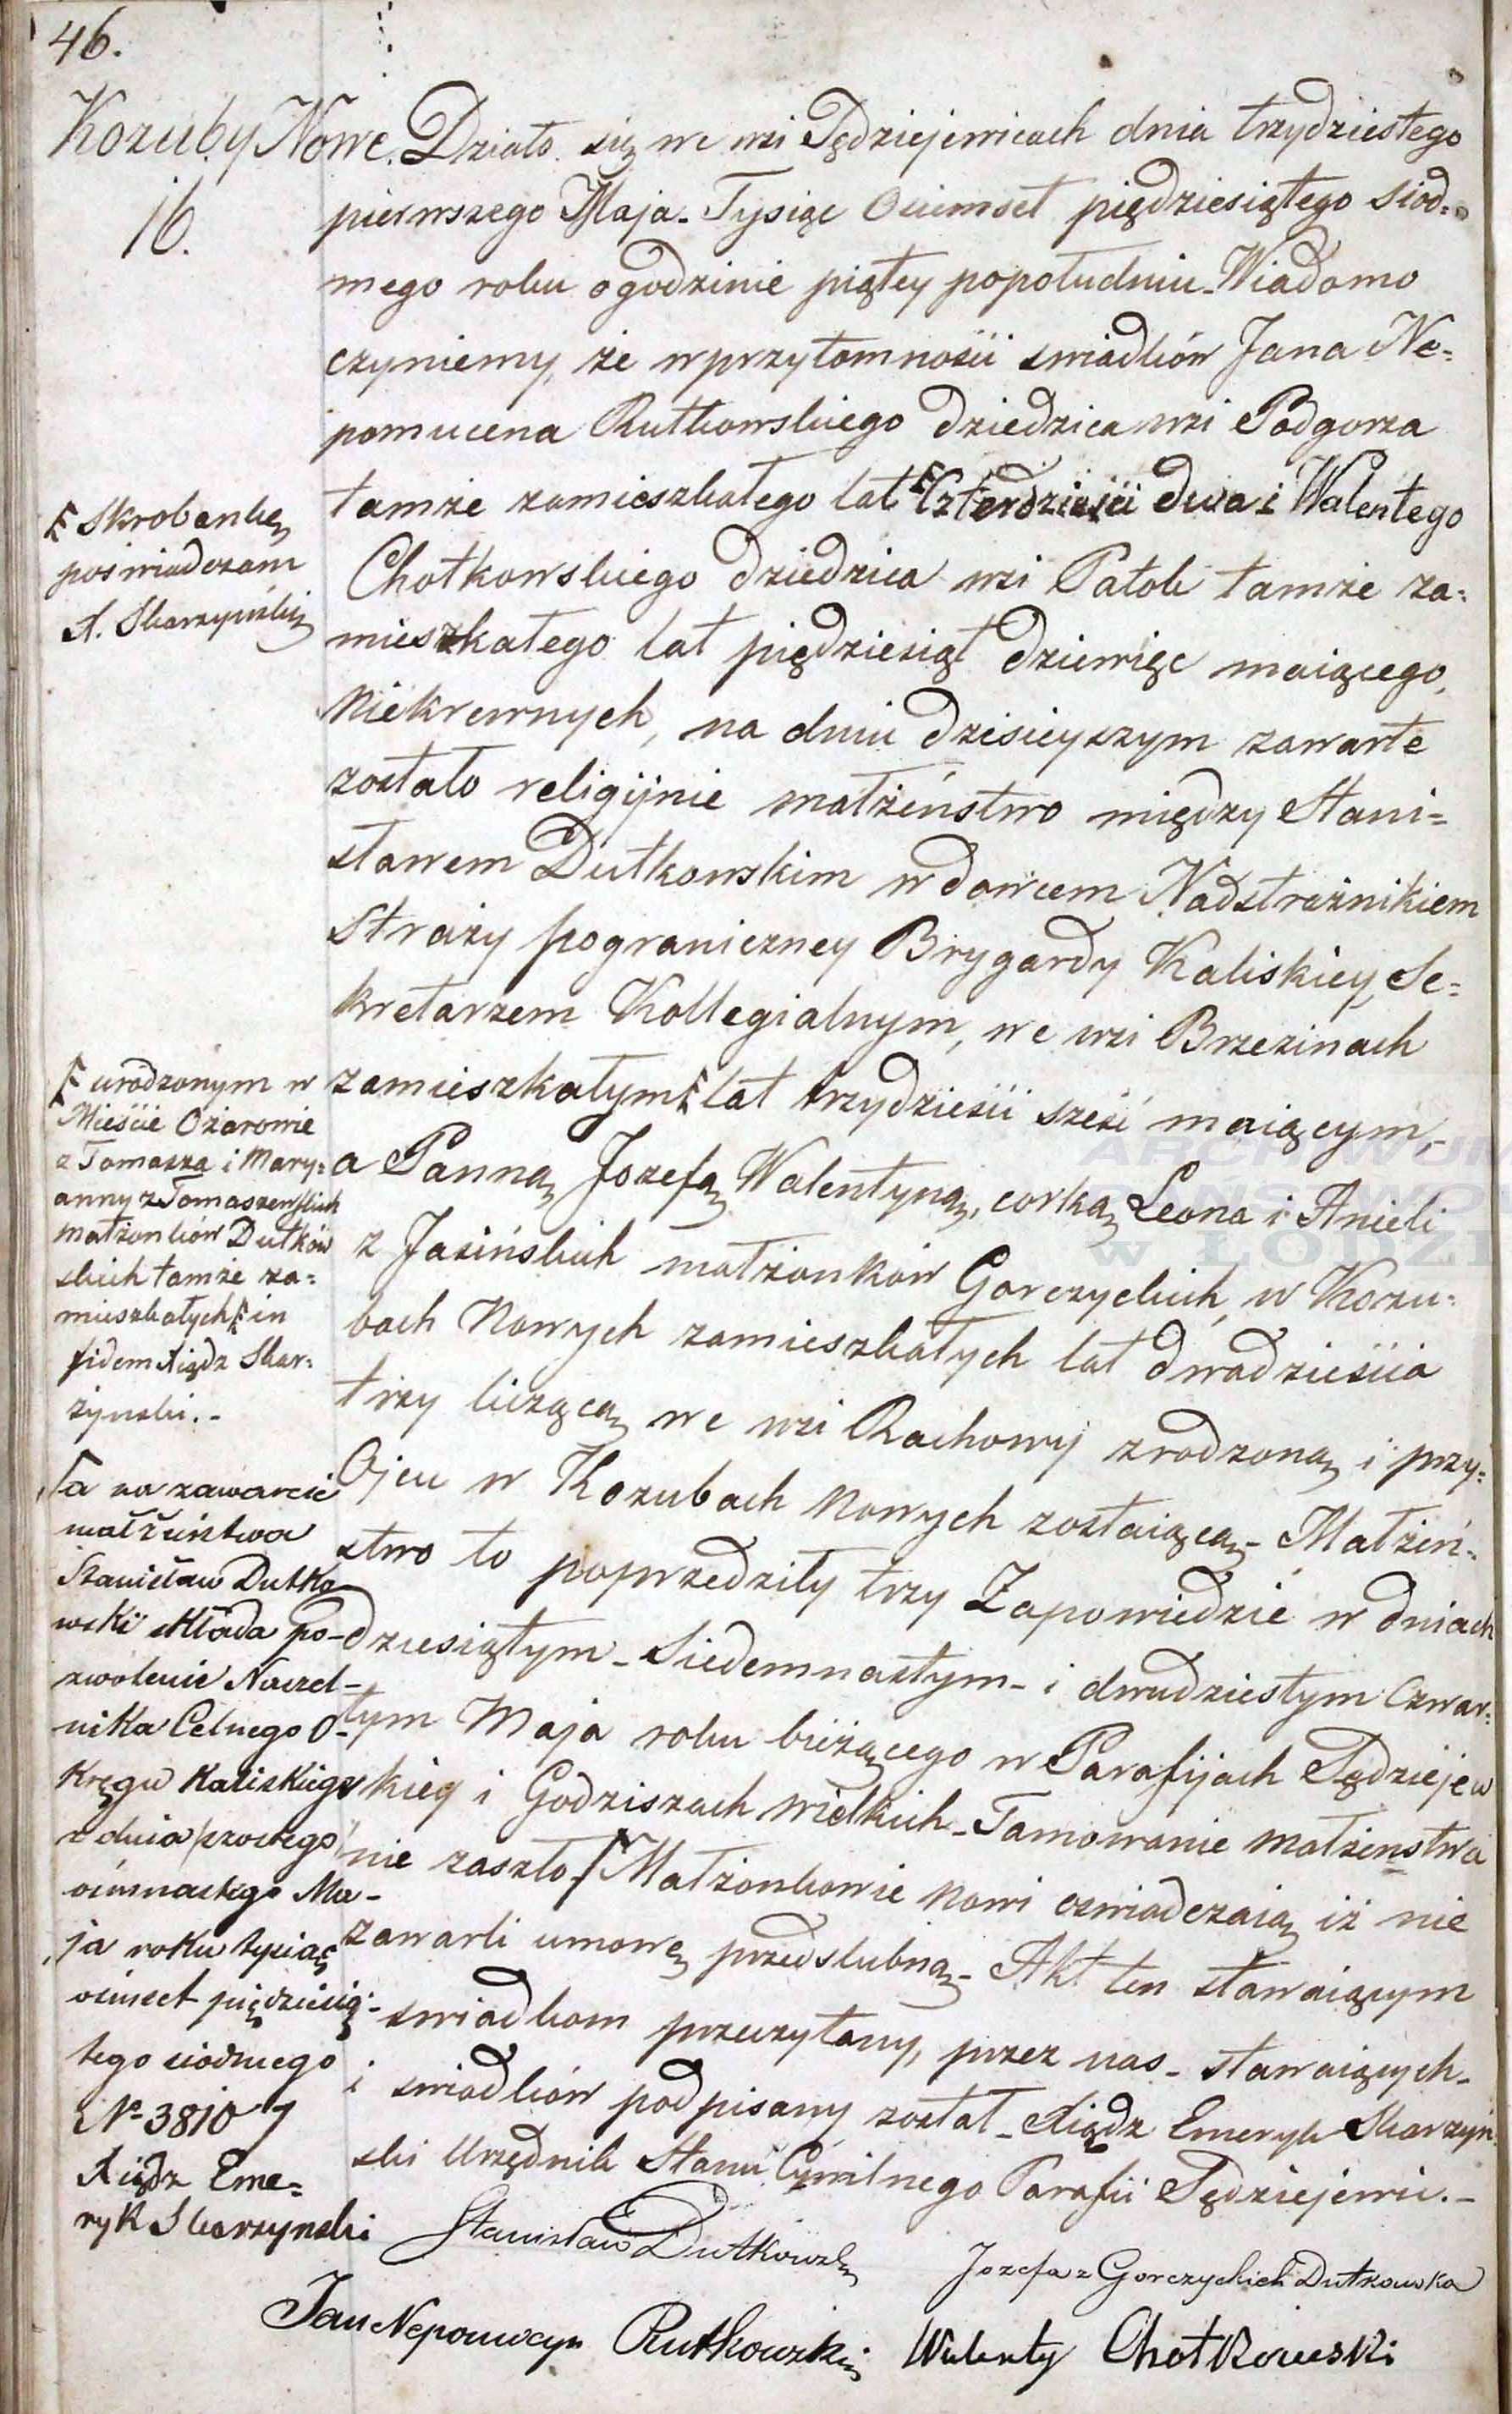 46.
Kozuby Nowe.
16.
Działo się we wsi Tędziejewicach dnia trzydziestego
pierwszego Maja. Tysiąc Ośmset piędziesiątego siod=
mego roku o godzinie piątey popołudniu. Wiadomo
czyniemy, że w przytomności swiadków Jana Ne=
pomucena Rutkowskiego dziedzica wsi Podgorza
tamże zamieszkałego lat czterdzieści dwa i Walentego
Chotkowskiego dziedzica wsi Patok tamże za=
mieszkałego lat piędziesiąt dziewięc maiącego,
Niekrewnych, na dniu dzisieyszym zawarte
zostało religijnie małżeństwo między Stani=
sławem Dutkowskim wdowcem Nadstrażnikiem
Straży pograniczney Brygardy Kaliskiey, Se=
kretarzem Kollegialnym, we wsi Brzezinach
zamieszkałym lat trzydzieści sześć maiącym,
a Panną Jozefą Walentyną, corką Leona i Anieli
z Jasińskich małżonków Gorczyckich, w Kozu=
bach Nowych zamieszkałych lat dwadzieścia
trzy liczącą we wsi Rachowy zrodzoną i przy=
Ojcu w Kozubach Nowych zostaiącą. Małżeń=
stwo to poprzedziły trzy Zapowiedzie w dniach
dziesiątym - Siedemnastym - i dwudziestym Czwar=
tym Maja roku bieżącego w Parafijach Tędziejew
skiey i Godziszach wielkich. Tamowanie małżenstwa
nie zaszło. Małżonkowie Nowi oswiadczaią iż nie
zawarli umowę przedslubną. Akt ten stawaiącym
swiadkom przeczytany, przez nas - stawaiących -
i swiadków podpisany został. Xiądz Emeryk Skarzyń
ski Urzędnik Stanu Cywilnego Parafii Tędziejewic.-
Stanisław Dutkowski
Jozefa z Gorczyckich Dutkowska
Jan Nepomucyn Rutkowski
Walenty Chotkowski
Skrobankę
poświadczam
X. Skarzyński
urodzonym w
Mieście Ożarowie
z Tomasza i Mary=
anny z Tomaszewskich
małżonków Dutków
skich tamże za=
mieszkałych in
fidem Xiądz Skar=
żynski.-
a na zawarcie
małżeństwa
Stanisław Dutko
wski składa po-
zwolenie Naczel-
nika Celnego O-
Kręgu Kaliskiego
z dnia szostego
ośmnastego Ma-
ja roku tysiąc
ośmset pięдziesią-
tego siodmego
№ 38107
Xiądz Eme=
ryk Skarzynski
ARCHIWUM
PAŃSTWO
w ŁODZI